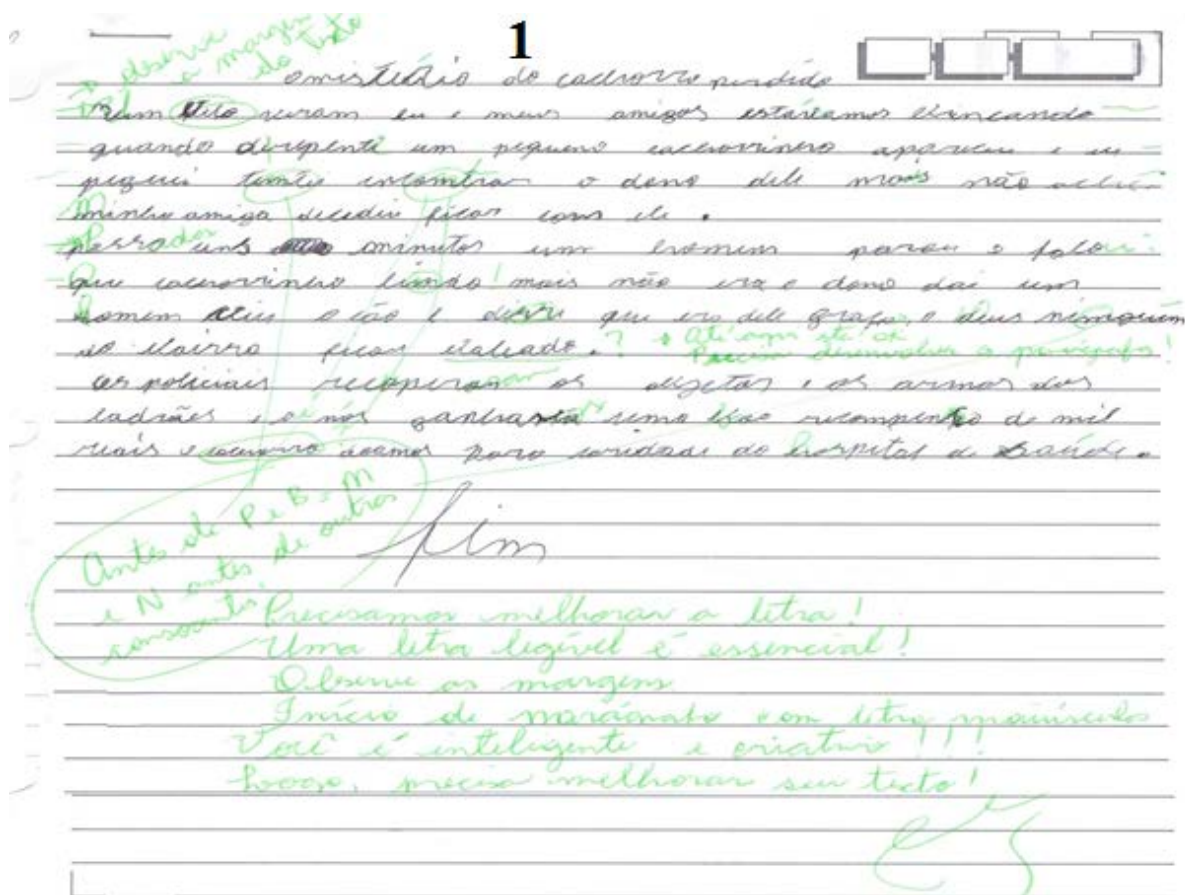 1
observe
a margem
do texto
omistério do cachorro perdido
um belo veram eu e meus amigos estavamos brincando
quando derepente um pequeno cachorrinho apareceu e eu
peguei temtei encomtrar o dono dele mais não achei
minha amiga decediu ficar com ele.
passo uns minutos um homem parou e falou
que cachorrinho limdo! mais não era o dono dai um
homem o cão e disse que era dele graças a deus nimguem
do bairro ficou baleado. ? Até aqui está ok
Precisa desenvolver o parágrafo!
os policiais recuperam os objetos e as armas dos
ladrães e nós uma boa recompensa de mil
reais e doamos para caridade do hospital de Saúde.
fim
Antes de P e B = M
e N antes de outras
consoantes.
Precisamos melhorar a letra!
Uma letra legível é essencial!
Observe as margens
Início de parágrafo com letra maiúscula
Você é inteligente e criativo!!!
Logo, precisa melhorar seu texto!